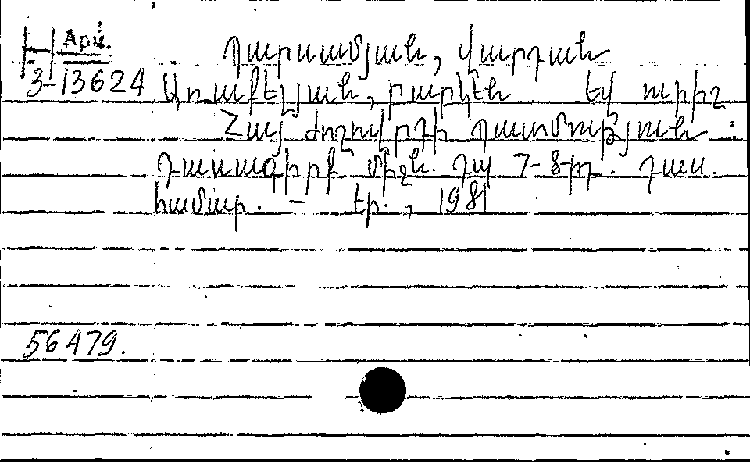 Арм.
Պարսամյան, Վարդան
3-13624 Առաքելյան, բաբկեն եվ ուրիշ
Հայ ժողովրդի պատմություն :
դասագիրք միջն. դպ 7-8-րդ. դաս.
համար. – եր., 1981
56479.